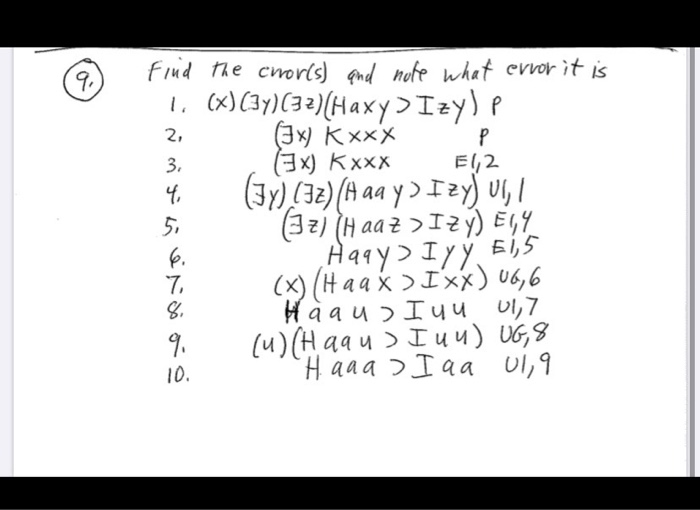 9. Find the error(s) and note what error it is
1. (x)(∃y)(∃z)(Haxy ⊃ Izy) P
2. (∃x) Kxxx P
3. (∃x) Kxxx EI, 2
4. (∃y)(∃z)(Haay ⊃ Izy) UI, 1
5. (∃z)(Haaz ⊃ Izy) EI, 4
6. Haay ⊃ Iyy EI, 5
7. (x)(Haax ⊃ Ixx) UG, 6
8. Haau ⊃ Iuu UI, 7
9. (u)(Haau ⊃ Iuu) UG, 8
10. Haaa ⊃ Iaa UI, 9